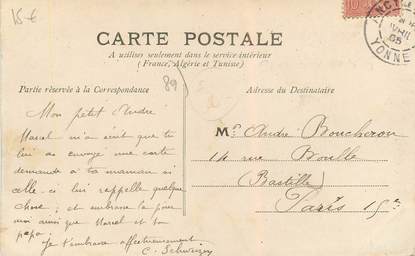 15 €
10
CARTE POSTALE
A utiliser seulement dans le service intérieur
(France, Algérie et Tunisie)
Partie réservée à la Correspondance
89
Adresse du Destinataire
YONNE
05
Mon petit André
Marcel m'a écrit que tu
lui as envoyé une carte
demande à ta maman si
celle ci lui rappelle quelque
chose; et embrasse la pour
moi ainsi que Marcel et son
papa.
Je t'embrasse affectueusement
C. Schweizer
Mr André Boucheron
14 rue Boulle
(Bastille)
Paris